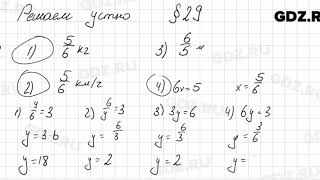 Решаем устно § 29
GDZ.RU
1) 5/6 кг
3) 6/5 м
2) 5/6 км/ч
4) 6x=5 x=5/6
1) y/6=3
y=3·6
y=18
2) 6/y=3
y=6/3
y=2
3) 3y=6
y=6/3
y=2
4) 6y=3
y=3/6
y=